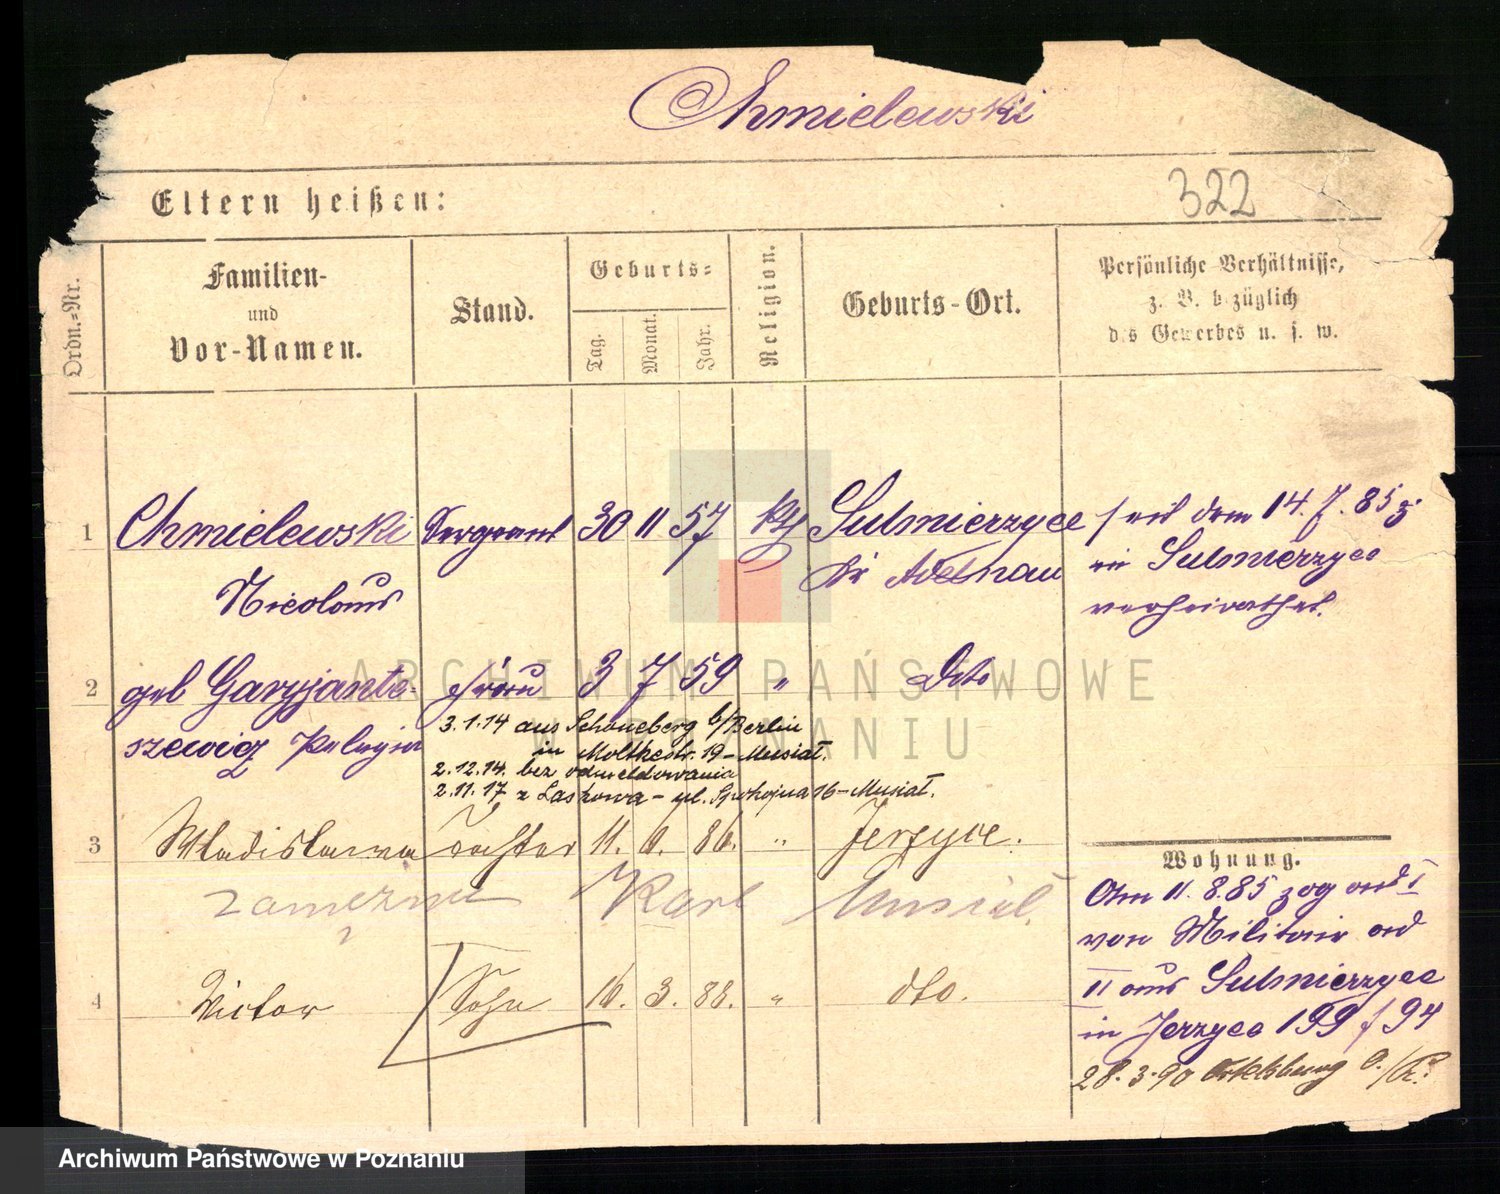 Chmielewski
322
Eltern heißen:
Ordn.-Nr.
Familien-
und
Vor-Namen.
Stand.
Geburts-
Tag.
Monat.
Jahr.
Religion.
Geburts-Ort.
Persönliche Verhältnisse,
z. B. bezüglich
des Gewerbes u. s. w.
1 Chmielewski Sergeant 30 11 57 kth Sulmierzyce seit dem 14.7.85
Nicolaus Kr Adelnau in Sulmierzyce
verheirathet.
2 geb Frau 3 7 59 " Dto
Pelagia
3.1.14 aus Schöneberg b/Berlin
in Moltkestr. 19 - Musiał.
2.12.14. bez odmeldowania
2.11.17 z Laskowa - ul. Spokojna 16 - Musiał.
3 Wladislawa Tochter 11. 6. 86. " Jerzyce.
zamężna Karl Musiał.
4 Victor Sohn 16. 3. 88. " dto.
Wohnung.
Am 11.8.85 zog ord I
von Militair ord
II aus Sulmierzyce
in Jerzyce 199/94
28.3.90 Ortelsburg O./Pr.
ARCHIWUM PAŃSTWOWE
W POZNANIU
Archiwum Państwowe w Poznaniu